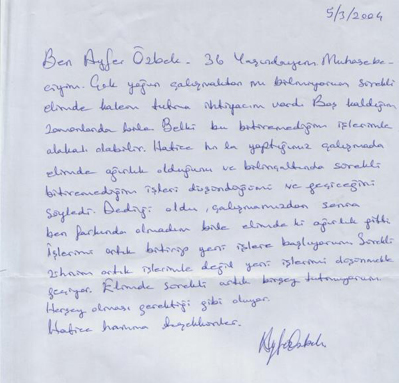 5/3/2004
Ben Ayfer Özbek. 36 Yaşındayım. Muhasebe-
ciyim. Çok yoğun çalışmaktan mı bilmiyorum sürekli
elimde kalem tutma ihtiyacım vardı Boş kaldığım
zamanlarda bile. Belki bu bitiremediğim işlerimle
alakalı olabilir. Hatice hn la yaptığımız çalışmada
elimde ağırlık olduğunu ve bilinçaltında sürekli
bitiremediğim işleri düşündüğümü ve geçiceğini
söyledi. Dediği oldu, çalışmamızdan sonra
ben farkında olmadım bile elimde ki ağırlık gitti
İşlerimi artık bitirip yeni işlere başlıyorum Sürekli
zihnim artık işlerimle değil yeni işlerimi düşünmekle
geçiyor. Elimde sürekli artık birşey tutmuyorum
Herşey olması gerektiği gibi oluyor.
Hatice hanıma teşekkürler.
Ayfer Özbek